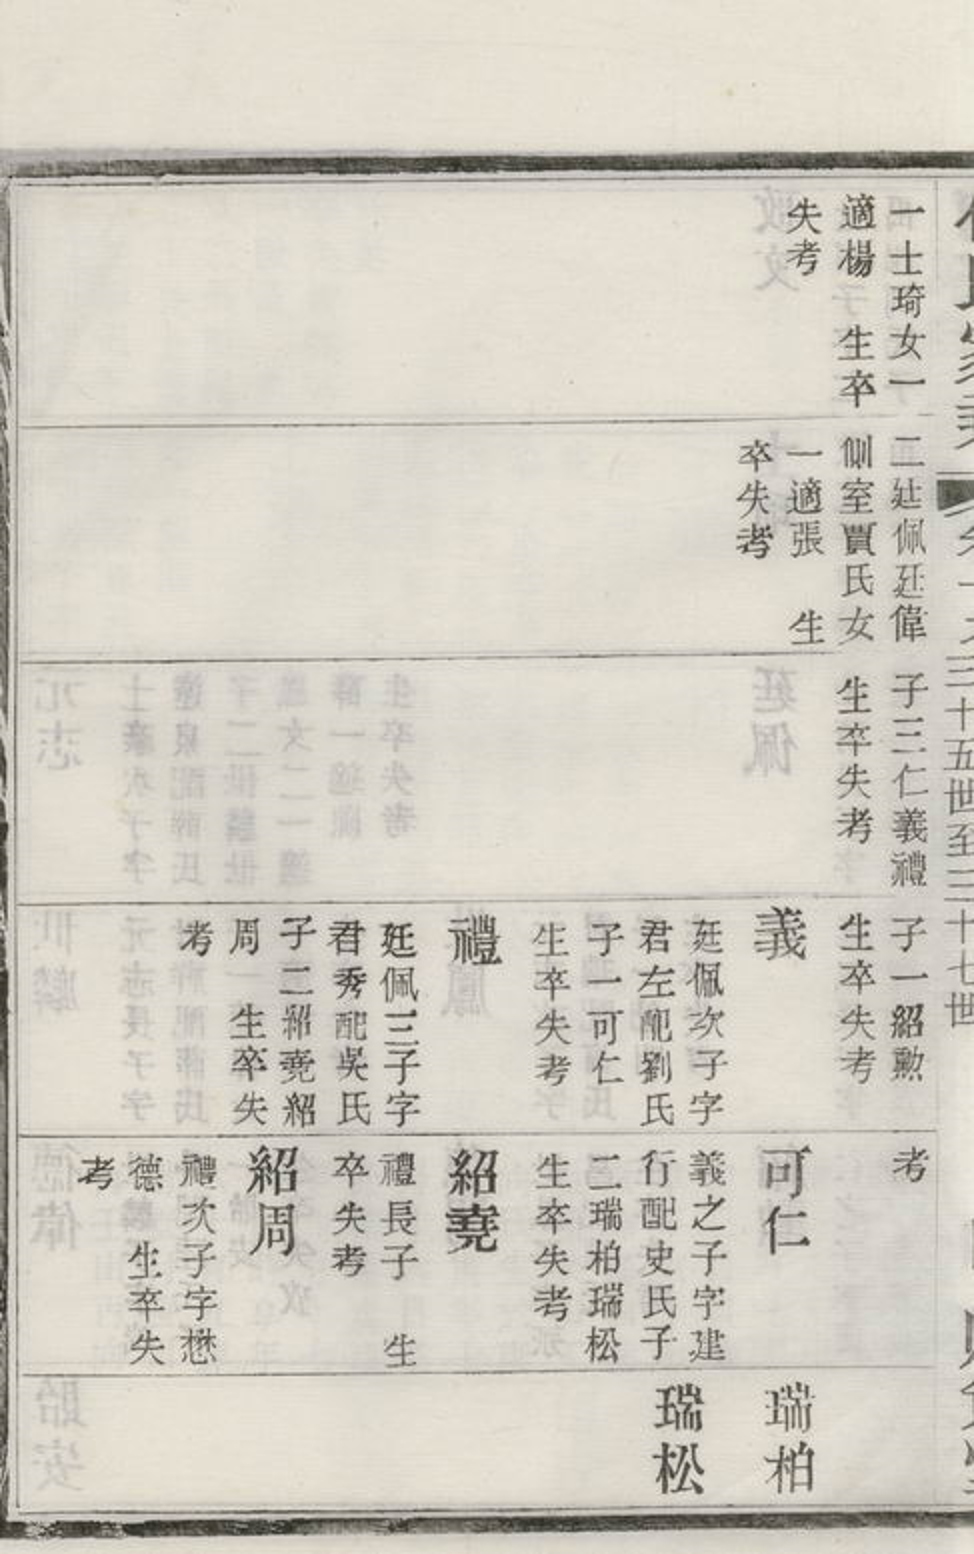 卷十之三十五世至三十七世
一士琦女一
適楊　生卒
失考
二廷佩廷偉
側室賈氏女
一適張　生
卒失考
子三仁義禮
生卒失考
子一紹勲
生卒失考
義
廷佩次子字
君左配劉氏
子一可仁
生卒失考
禮
廷佩三子字
君秀配吳氏
子二紹堯紹
周　生卒失
考
考
可仁
義之子字建
行配史氏子
二瑞柏瑞松
生卒失考
紹堯
禮長子　生
卒失考
紹周
禮次子字懋
德　生卒失
考
瑞柏
瑞松